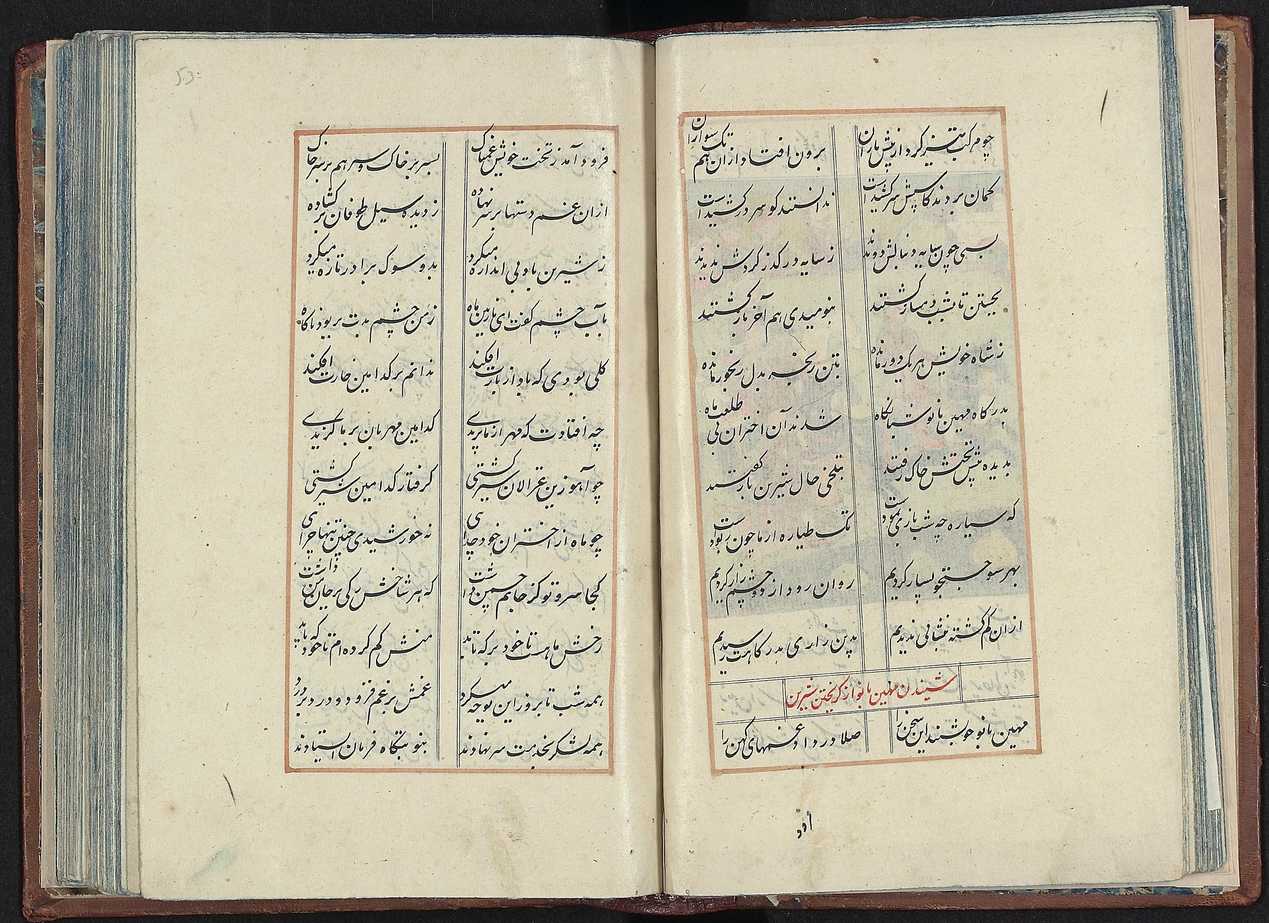 چو مرکب تیز کرد از پیش یاران برون افتاد ازان هم تک سواران
گمان بردند کاسپش سر کشیدست ندانستند کو سر در کشیدست
بسی چون سایه دنبالش دویدند ز سایه در گذر گردش ندیدند
بجستن تا بشب دمساز گشتند بنومیدی هم آخر باز گشتند
ز شاه خویش هر یک دور مانده بتن رنجه بدل رنجور مانده
بدرگاه مهین بانو شبانگاه شدند آن اختران بی طلعت ماه
بدیده پیش تختش خاک رفتند بتلخی حال شیرین باز گفتند
که سیاره چه شب بازی نمودست تک طیاره از ما چون ربودست
بهر سو جستجو بسیار کردیم روان رود از دو چشم زار کردیم
ازان گم گشته نشانی ندیدیم بدین زاری بدرگاهت رسیدیم
شنیدن مهین بانو از گریختن شیرین
مهین بانو چو بشنید این سخن را صلا در داد غمهای کهن را
فرود آمد ز تخت خویش غمناک بسر بر خاک و سر هم بر سر خاک
ازان غم دستها بر سر نهاده ز دیده سیل طوفان بر گشاده
ز شیرین یاد بی اندازه میکرد بدو سوک برادر تازه میکرد
بآب چشم گفت ای نازنین ماه ز من چشم بدت بربود ناگاه
گلی بودی که باد از بارت افکند ندانم بر کدامین خارت افکند
چه افتادت که مهر از ما بریدی کدامین مهربان بر ما گزیدی
چو آهو زین غزالان سیر گشتی گرفتار کدامین شیر گشتی
چو ماه از اختران خود جدایی نه خورشیدی چنین تنها چرایی
کجا سرو تو کز جانم چمن داشت که هر شاخش رگی بر جان من داشت
رخش ماهست تا خود بر که تابد منش گم کرده ام تا خود که یابد
همه شب تا بروز این نوحه میکرد غمش بر غم فزود و درد بر درد
همه لشکر بخدمت سر نهادند بنوبتگاه فرمان ایستادند